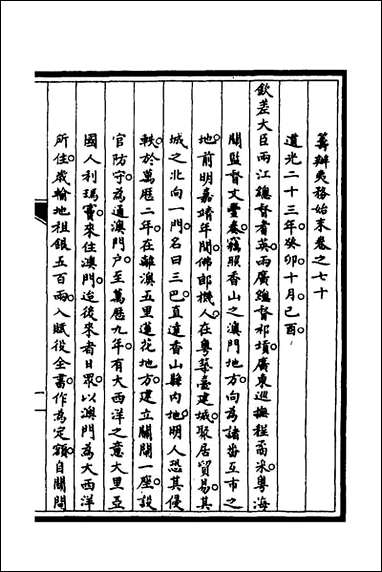 籌辦夷務始末卷之七十
道光二十三年癸卯十月己酉
欽差大臣兩江總督耆英兩廣總督祁𡎴廣東巡撫程矞采粵海
關監督文豐奏竊照香山之澳門地方向為諸番互市之
地前明嘉靖年間佛郎機人在粵築臺建城聚居貿易其
城之北向一門名曰三巴直達香山縣內地明人恐其侵
軼於萬歷二年在離澳五里蓮花地方建立關閘一座設
官防守為通澳門戶至萬歷九年有大西洋之意大里亞
國人利瑪竇來住澳門迨後來者日眾以澳門為大西洋
所住歲輸地租銀五百兩入賦役全書作為定額自關閘